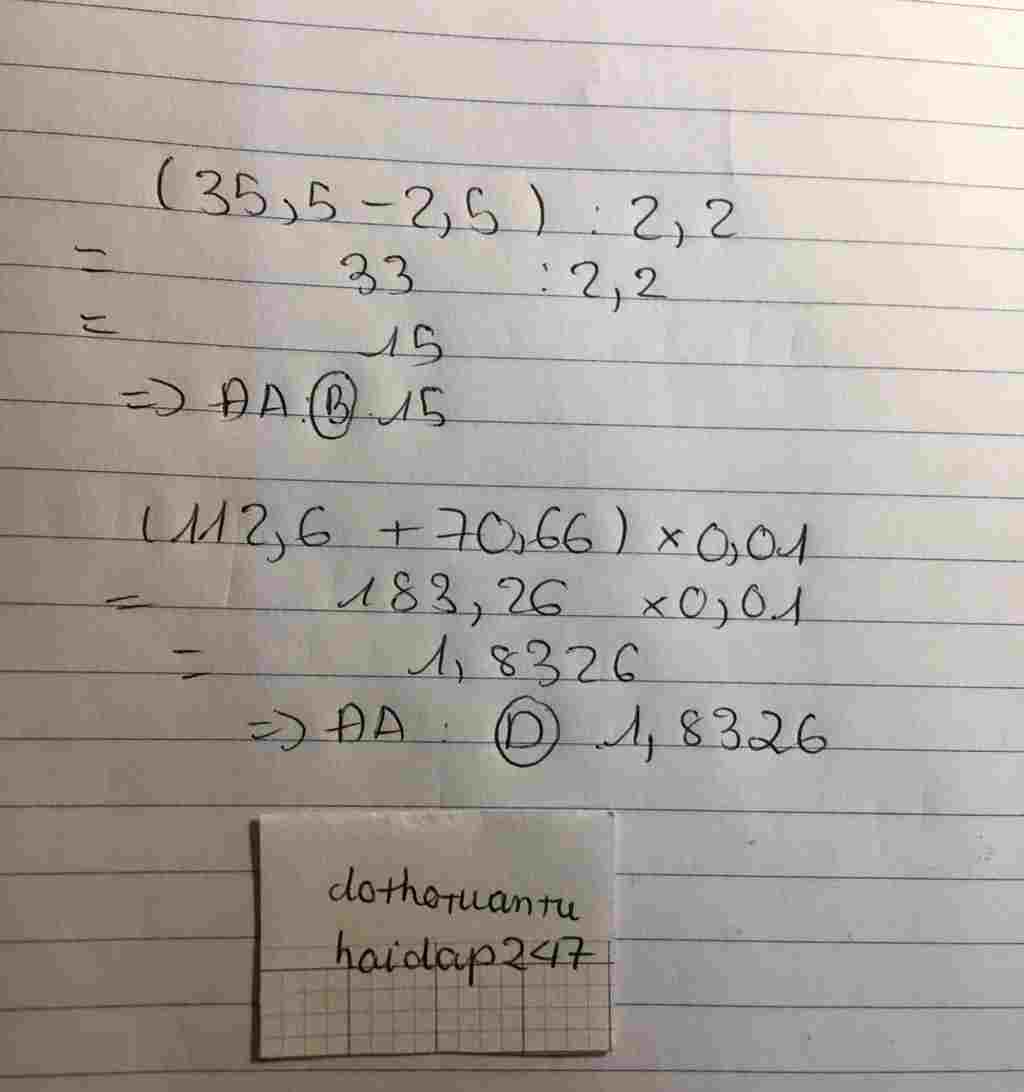 (35,5-2,5) : 2,2
= 33 : 2,2
= 15
=> ĐA: B. 15
(112,6 + 70,66) × 0,01
= 183,26 × 0,01
= 1,8326
=> ĐA : D 1,8326
dothotuantu
hoidap247